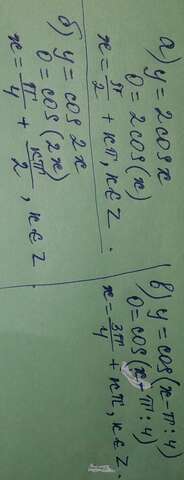 а) y = 2cosx
0 = 2cos(x)
x = π/2 + κπ, κ ∈ Z.
б) y = cos 2x
0 = cos(2x)
x = π/4 + κπ/2, κ ∈ Z.
в) y = cos(x - π : 4)
0 = cos(x - π : 4)
x = 3π/4 + κπ, κ ∈ Z.